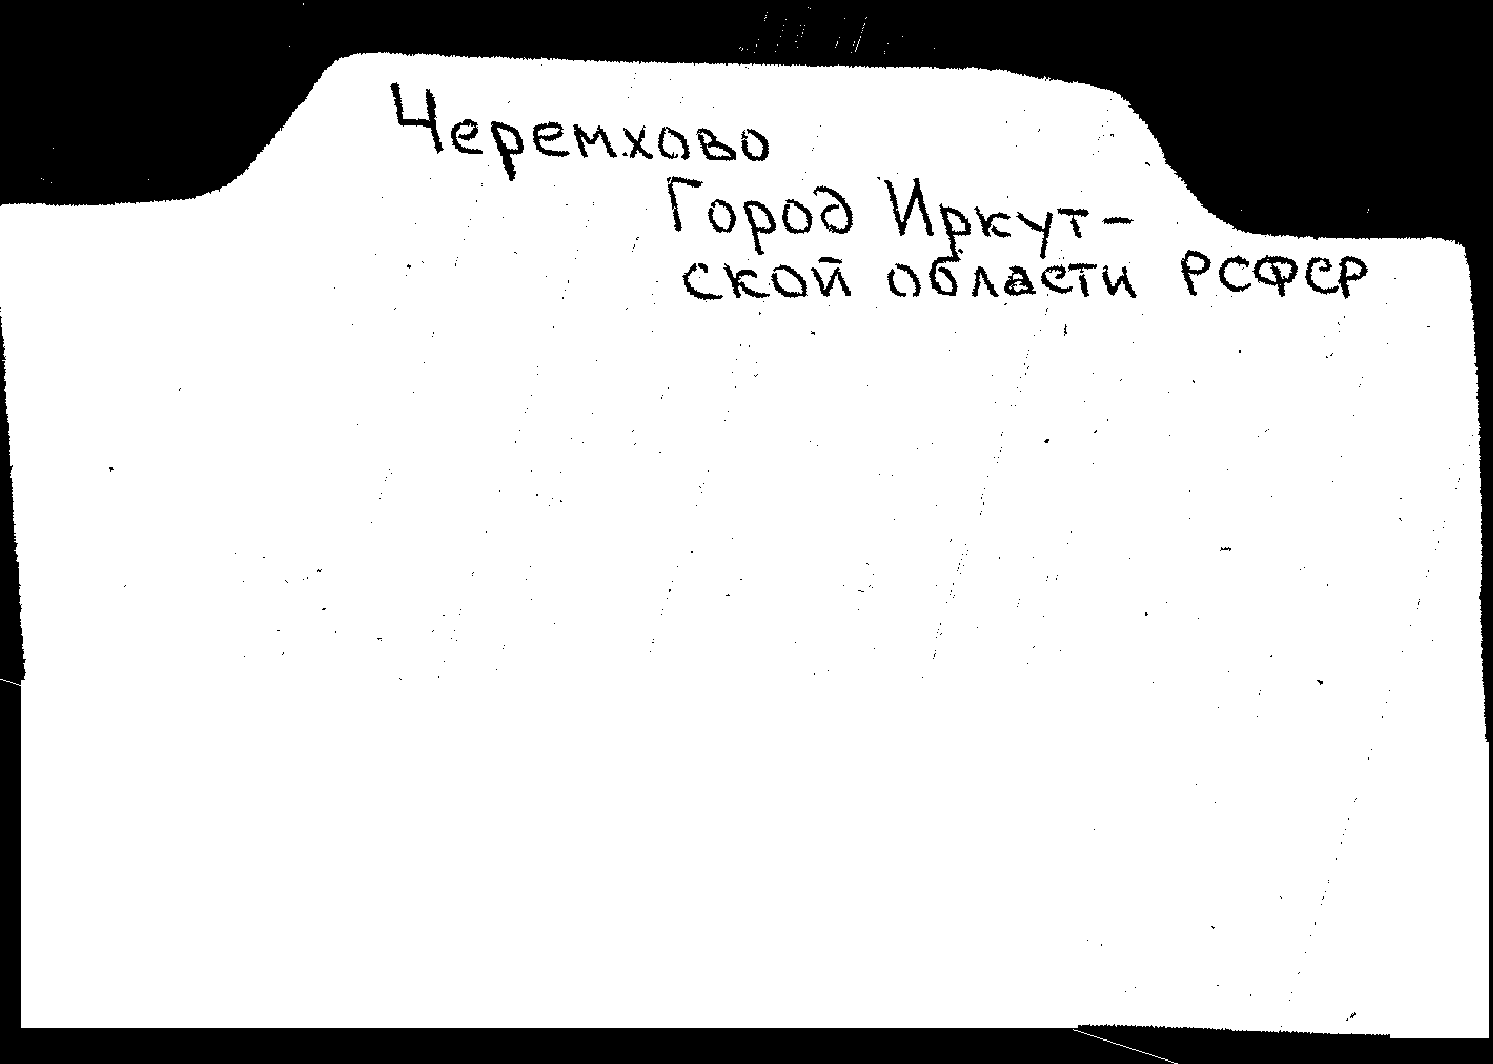 Черемхово
Город Иркут-
ской области РСФСР